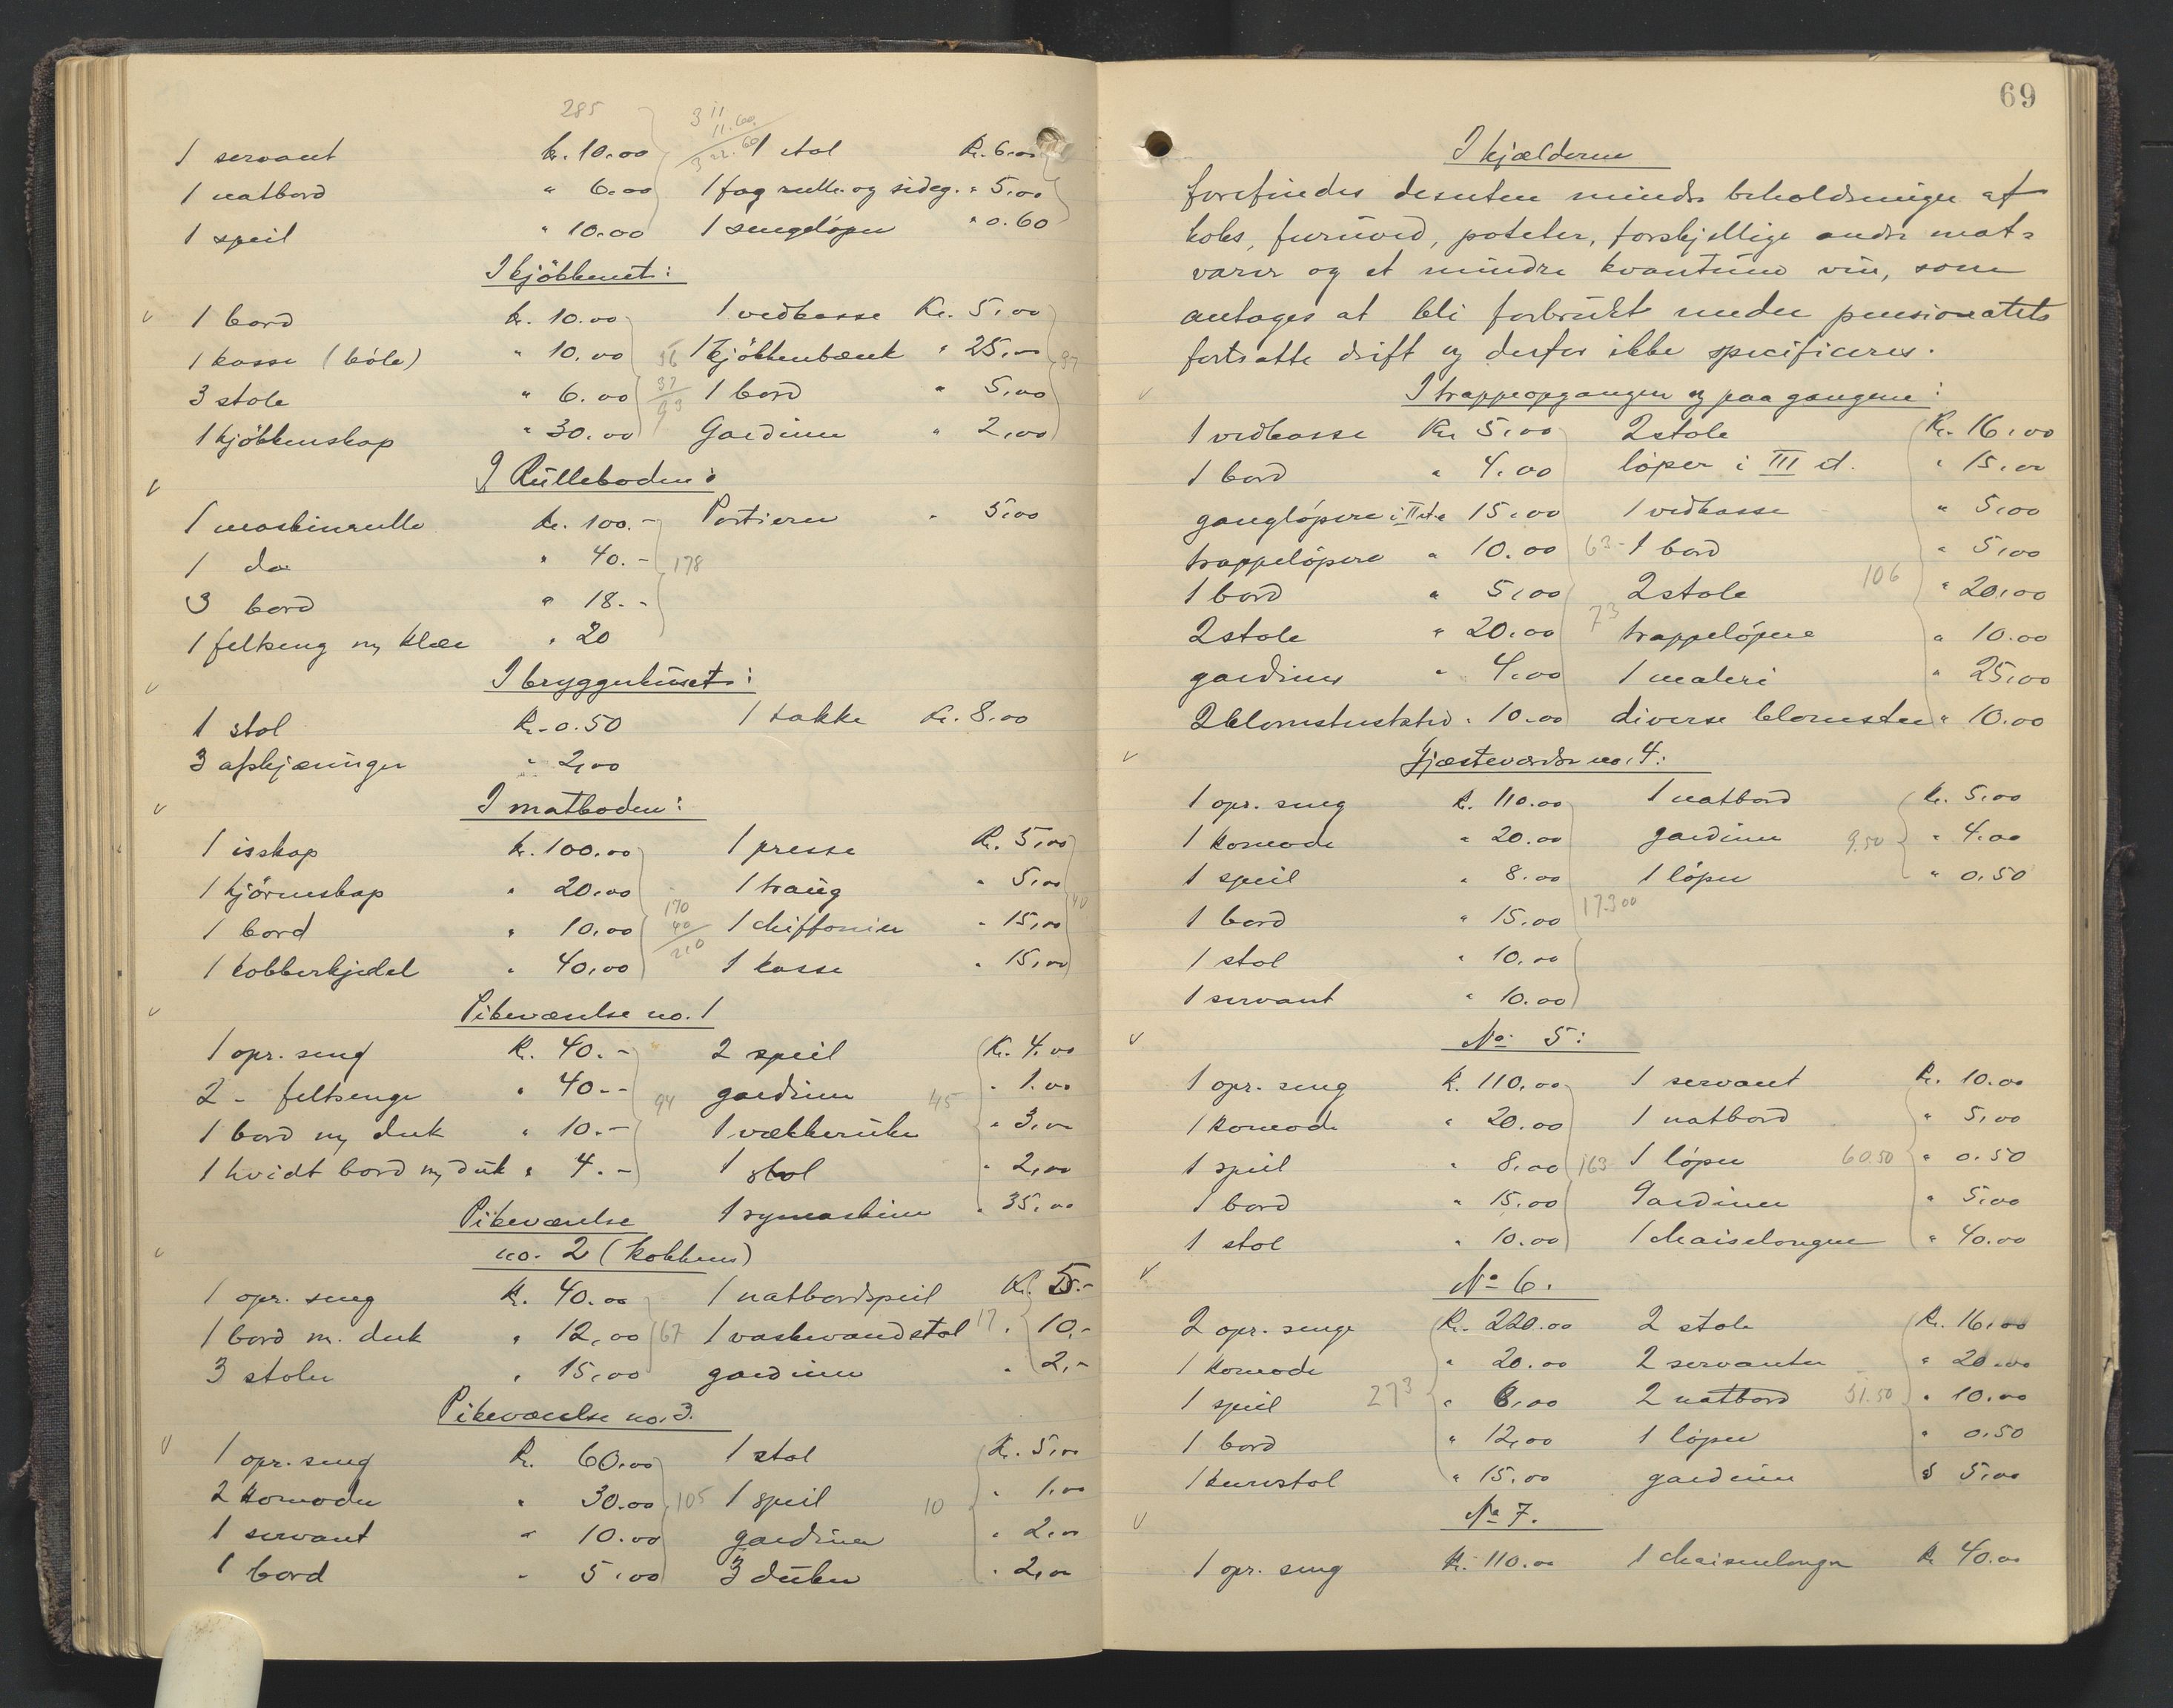 285
3 11
11.60
3 22.60
1 servant Kr. 10.00 1 stol Kr. 6.00
1 natbord " 6.00 1 fag rulle- og sideg. " 5,00
1 speil " 10.00 1 sengeløper " 0.60
I kjökkenet:
1 bord Kr. 10.00 1 vedkasse Kr. 5,00
1 kasse (böle) " 10.00 56 1 kjökkenbænk " 25,- 37
3 stole " 6.00 37 1 bord " 5,00
93
1 kjökkenskap " 30.00 Gardiner " 2,00
I Rulleboden:
1 maskinrulle Kr. 100.- Portierer " 5,00
1 do " 40.- 178
3 bord " 18.-
1 feltseng m/ klær " 20
I bryggerhuset:
1 stol Kr. 0.50 1 takke Kr. 8.00
3 afskjæringer " 2,00
I matboden:
1 isskap Kr. 100.00 1 presse Kr. 5,00
1 hjörneskap " 20.00 1 traug " 5,00 40
1 bord " 10,00 170 1 chiffonier " 15,00
40
210
1 kobberkjedel " 40,00 1 kasse " 15,00
Pikeværelse no. 1
1 opr. seng Kr. 40.- 2 speil Kr. 4.00
2 - feltsenge " 40.- 94 gardiner 45 " 1.00
1 bord m/ duk " 10.- 1 vækkeruhr " 3,00
1 hvidt bord m/ duk " 4.- 1 stol " 2,00
Pikeværelse 1 symaskine " 35,00
no. 2 (kokkens)
1 opr. seng Kr. 40.00 1 natbordspeil Kr. 5.-
1 bord m. duk " 12,00 67 1 vaskevandstol 17 " 10,-
3 stoler " 15,00 gardiner " 2,-
Pikeværelse no. 3.
1 opr. seng Kr. 60.00 1 stol Kr. 5,00
2 komoder " 30.00 105 1 speil 10 " 1.00
1 servant " 10.00 gardiner " 2,00
1 bord " 5,00 3 duker " 2,00
69
I kjælderen
forefindes desuten mindre beholdninger af
koks, furuved, poteter, forskjellige andre mat=
varer og et mindre kvantum vin, som
antages at bli forbrukt under pensionatets
fortsatte drift og derfor ikke specificeres.
I trappeopgangen og paa gangene:
1 vedkasse Kr 5,00 2 stole Kr. 16,00
1 bord " 4.00 löper i III et. " 15,00
gangløpere i II et. " 15,00 1 vedkasse " 5,00
trappeløpere " 10.00 63- 1 bord " 5,00
1 bord " 5,00 2 stole 106 " 20,00
2 stole " 20.00 73 trappeløpere " 10.00
gardiner " 4,00 1 maleri " 25,00
2 blomsterstativ " 10.00 diverse blomster " 10.00
Gjæsteværelse no. 4:
1 opr. seng Kr. 110.00 1 natbord Kr. 5,00
1 komode " 20.00 gardiner 9.50 " 4.00
1 speil " 8.00 1 löper " 0.50
1 bord " 15.00 173 00
1 stol " 10.00
1 servant " 10.00
No 5:
1 opr. seng Kr. 110,00 1 servant Kr. 10.00
1 komode " 20.00 1 natbord " 5,00
1 speil " 8,00 163 1 löper 60.50 " 0.50
1 bord " 15.00 Gardiner " 5,00
1 stol " 10.00 1 chaiselongue " 40.00
No 6.
2 opr. senge Kr. 220.00 2 stole Kr. 16,00
1 komode " 20.00 2 servanter " 20.00
1 speil 273 " 6,00 2 natbord 51.50 " 10.00
1 bord " 12,00 1 löper " 0.50
1 kurvstol " 15.00 gardiner " 5,00
No 7.
1 opr. seng Kr. 110.00 1 chaiselongue Kr 40.00